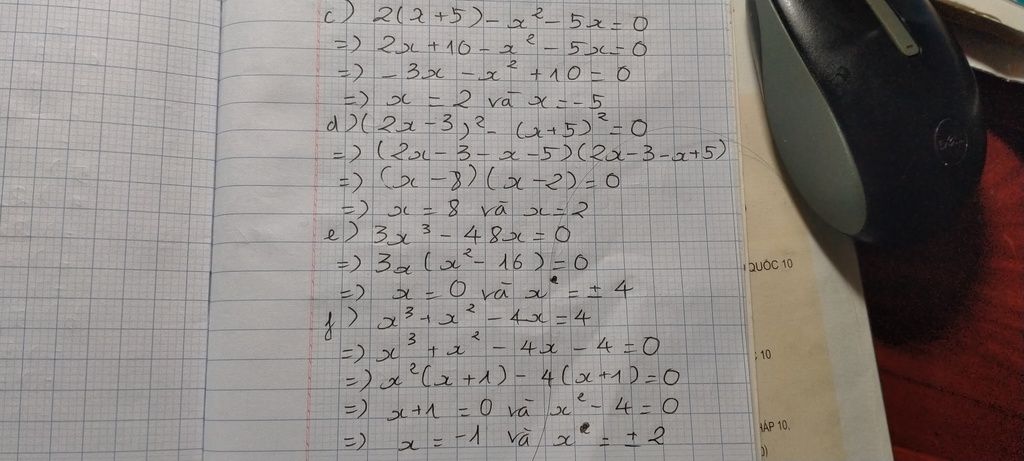 c) 2(x+5) - x² - 5x = 0
=) 2x + 10 - x² - 5x = 0
=) - 3x - x² + 10 = 0
=) x = 2 và x = -5
d) (2x - 3)² - (x+5)² = 0
=) (2x - 3 - x - 5)(2x - 3 - x + 5)
=) (x - 8)(x - 2) = 0
=) x = 8 và x = 2
e) 3x³ - 48x = 0
=) 3x(x² - 16) = 0
=) x = 0 và x = ± 4
f) x³ + x² - 4x = 4
=) x³ + x² - 4x - 4 = 0
=) x²(x + 1) - 4(x+1) = 0
=) x+1 = 0 và x² - 4 = 0
=) x = -1 và x = ± 2
QUỐC 10
10
HÁP 10,